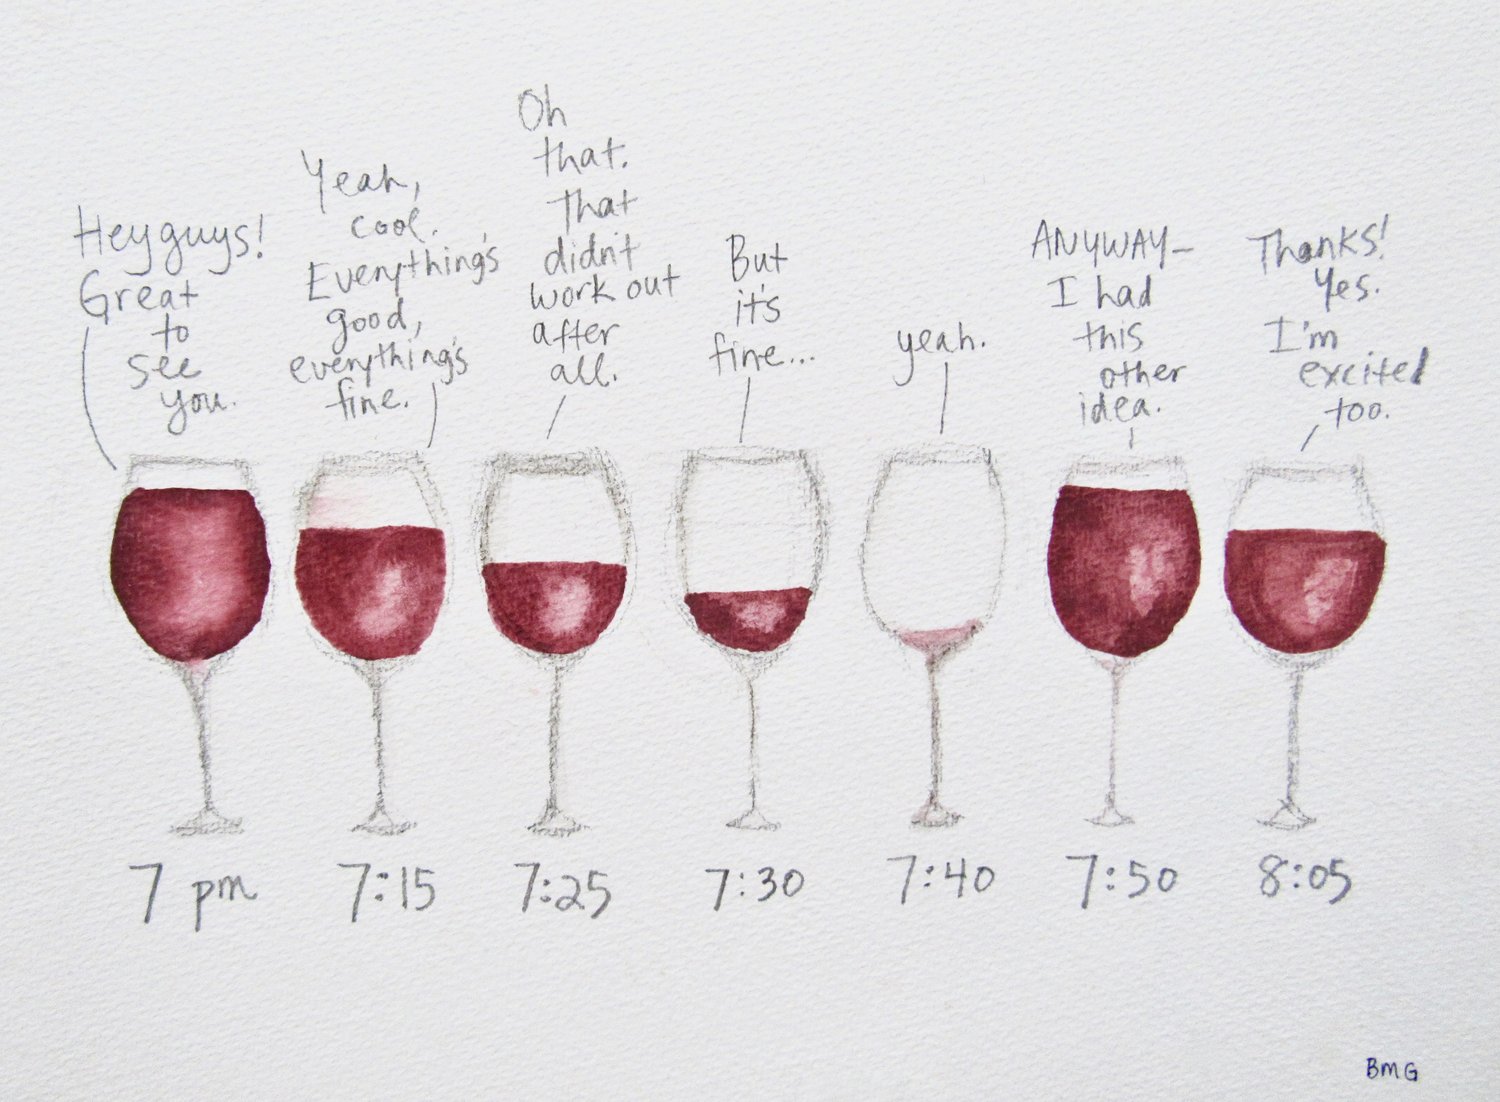 Hey guys!
Great
to
see
you.
Yeah,
cool.
Everything's
good,
everything's
fine.
Oh
that.
That
didn't
work out
after
all.
But
it's
fine...
yeah.
ANYWAY—
I had
this
other
idea.
Thanks!
Yes.
I'm
excited
too.
7 pm
7:15
7:25
7:30
7:40
7:50
8:05
BMG